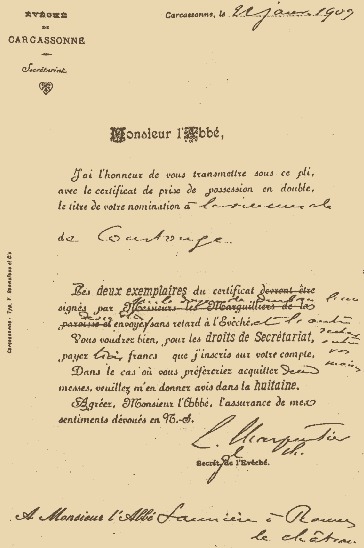 ÉVÊCHÉ
DE
CARCASSONNE
Secrétariat
Carcassonne, le 22 janv. 1909
Monsieur l'Abbé,
J'ai l'honneur de vous transmettre sous ce pli,
avec le certificat de prise de possession en double,
le titre de votre nomination à la succursale
de Coustouge
Les deux exemplaires du certificat devront être
signés par Messieurs les Marguilliers de la
paroisse et envoyés sans retard à l'Evêché, et l'autre
Vous voudrez bien, pour les droits de Secrétariat,
payer trois francs que j'inscris sur votre compte.
Dans le cas où vous préféreriez acquitter deux
messes, veuillez m'en donner avis dans la huitaine.
Agréez, Monsieur l'Abbé, l'assurance de mes
sentiments dévoués en N.-S.
Secrét. de l'Evêché.
A Monsieur l'Abbé Saunière à Rennes
le château